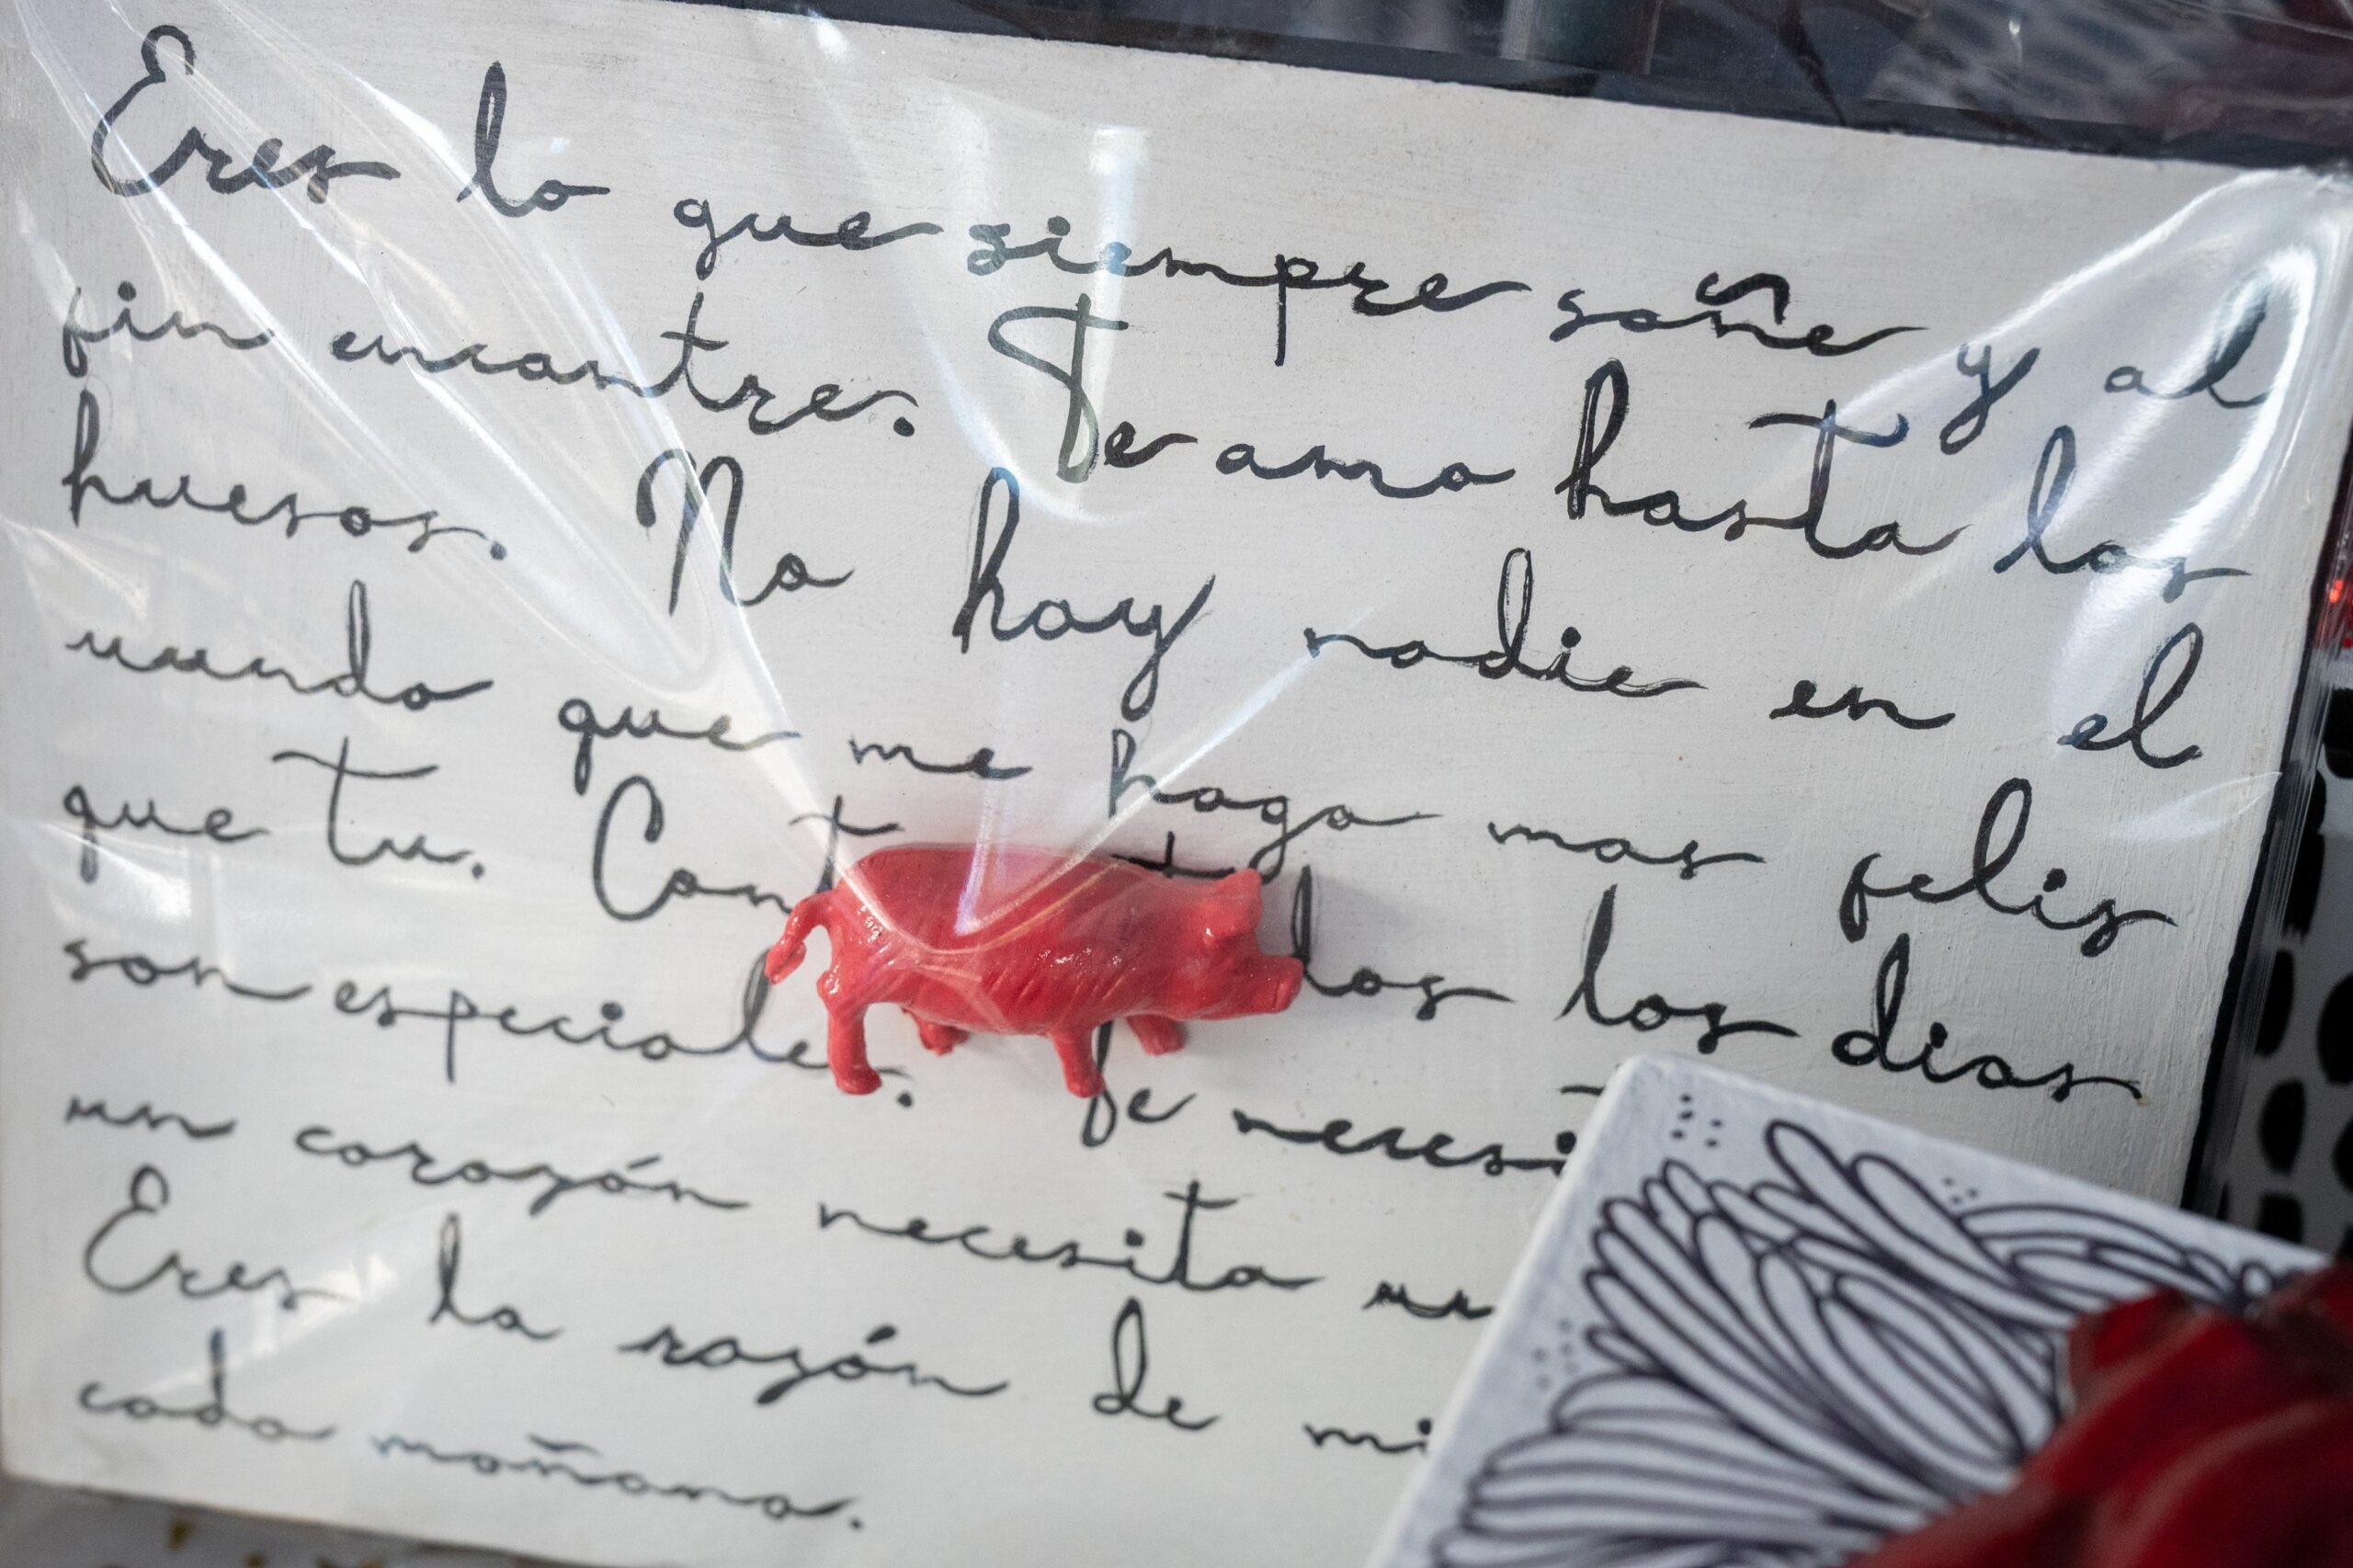 Eres lo que siempre soñe y al
fin encontre. Te amo hasta los
huesos. No hay nadie en el
mundo que me haga mas feliz
que tu. Cont dos los dias
son especiales. Te necesi
un corazón necesita un
Eres la razón de mi
cada mañana.